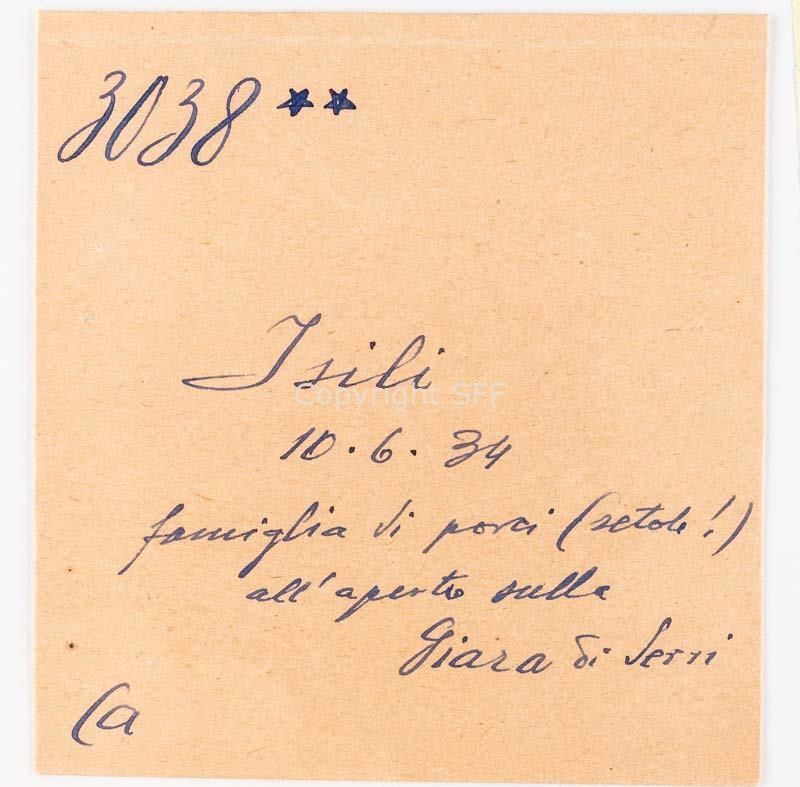 3038 **
Isili
Copyright SFF
10.6.34
famiglia di porci (setole!)
all'aperto sulla
Giara di Serri
Ca